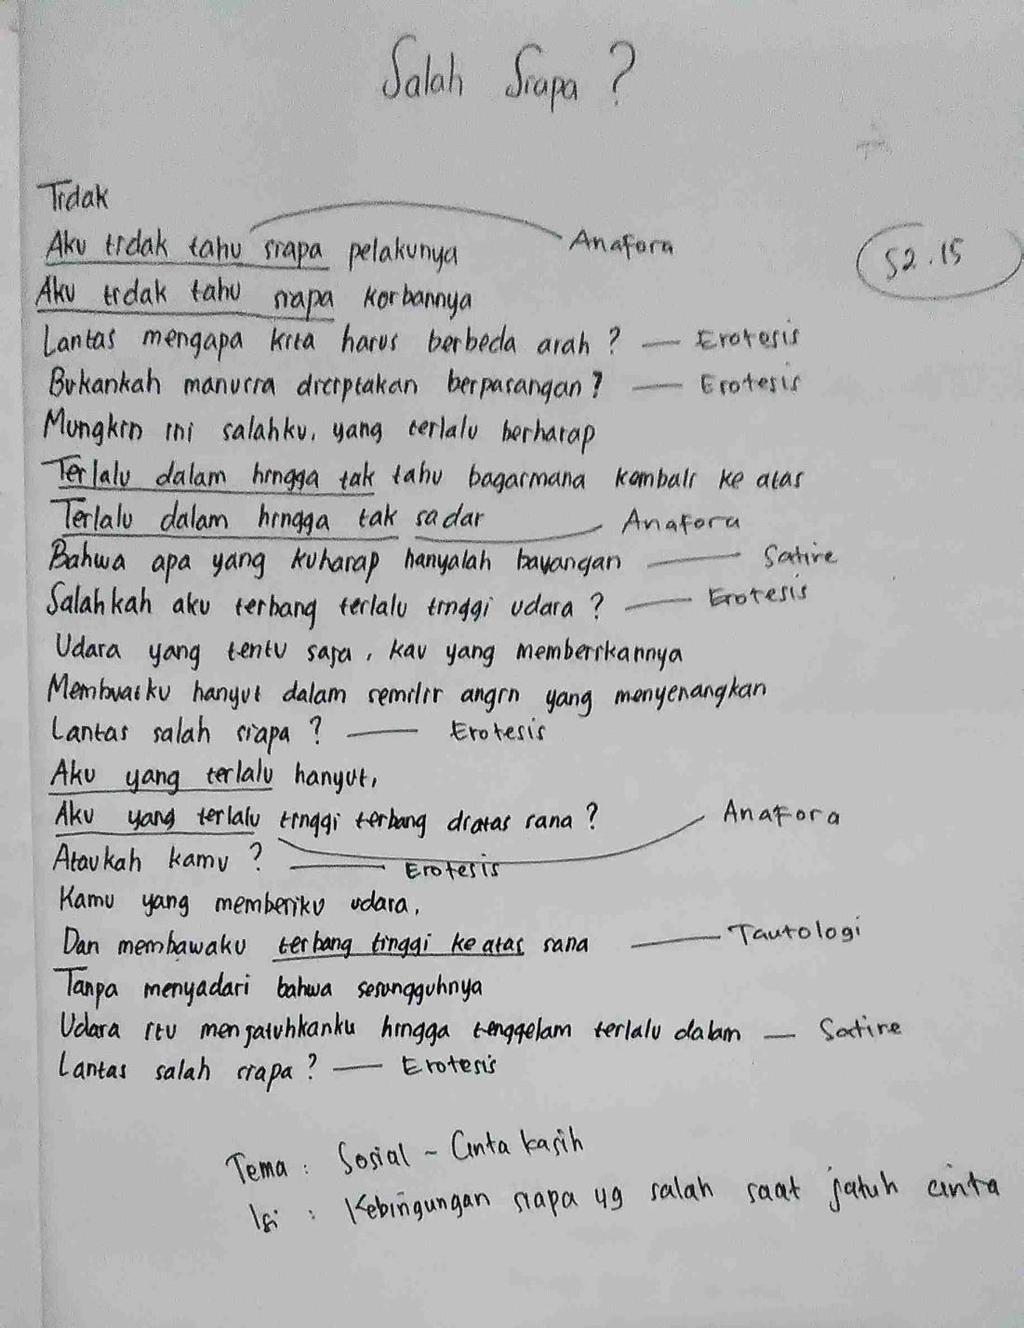 Salah Siapa ?
Tidak
Aku tidak tahu siapa pelakunya Anafora
S2.15
Aku tidak tahu siapa korbannya
Lantas mengapa kita harus berbeda arah ? — Erotesis
Bukankah manusia diciptakan berpasangan ? — Erotesis
Mungkin ini salahku, yang terlalu berharap
Terlalu dalam hingga tak tahu bagaimana kembali ke atas
Terlalu dalam hingga tak sadar Anafora
Bahwa apa yang kuharap hanyalah bayangan — Satire
Salahkah aku terbang terlalu tinggi udara ? — Erotesis
Udara yang tentu saja, kau yang memberikannya
Membuatku hanyut dalam semilir angin yang menyenangkan
Lantas salah siapa ? — Erotesis
Aku yang terlalu hanyut,
Aku yang terlalu tinggi terbang diatas sana ? Anafora
Ataukah kamu ? — Erotesis
Kamu yang memberiku udara,
Dan membawaku terbang tinggi ke atas sana — Tautologi
Tanpa menyadari bahwa sesungguhnya
Udara itu menjatuhkanku hingga tenggelam terlalu dalam — Satire
Lantas salah siapa ? — Erotesis
Tema : Sosial - Cinta kasih
Isi : Kebingungan siapa yg salah saat jatuh cinta